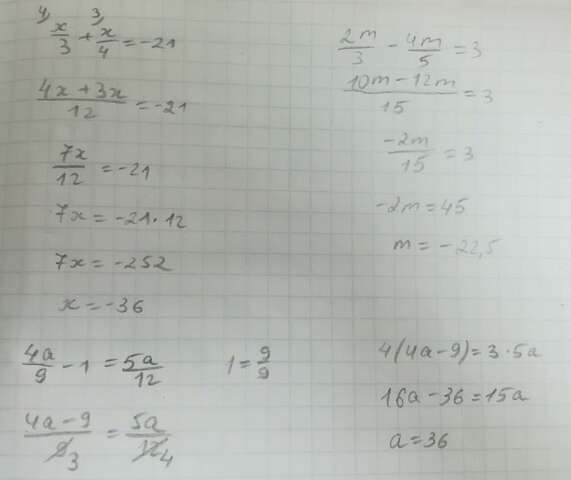 4) 3)
x/3 + x/4 = -21
(4x + 3x)/12 = -21
7x/12 = -21
7x = -21·12
7x = -252
x = -36
2m/3 - 4m/5 = 3
(10m - 12m)/15 = 3
-2m/15 = 3
-2m = 45
m = -22,5
4a/9 - 1 = 5a/12
1 = 9/9
(4a - 9)/9 3 = 5a/12 4
4(4a-9) = 3·5a
16a - 36 = 15a
a = 36